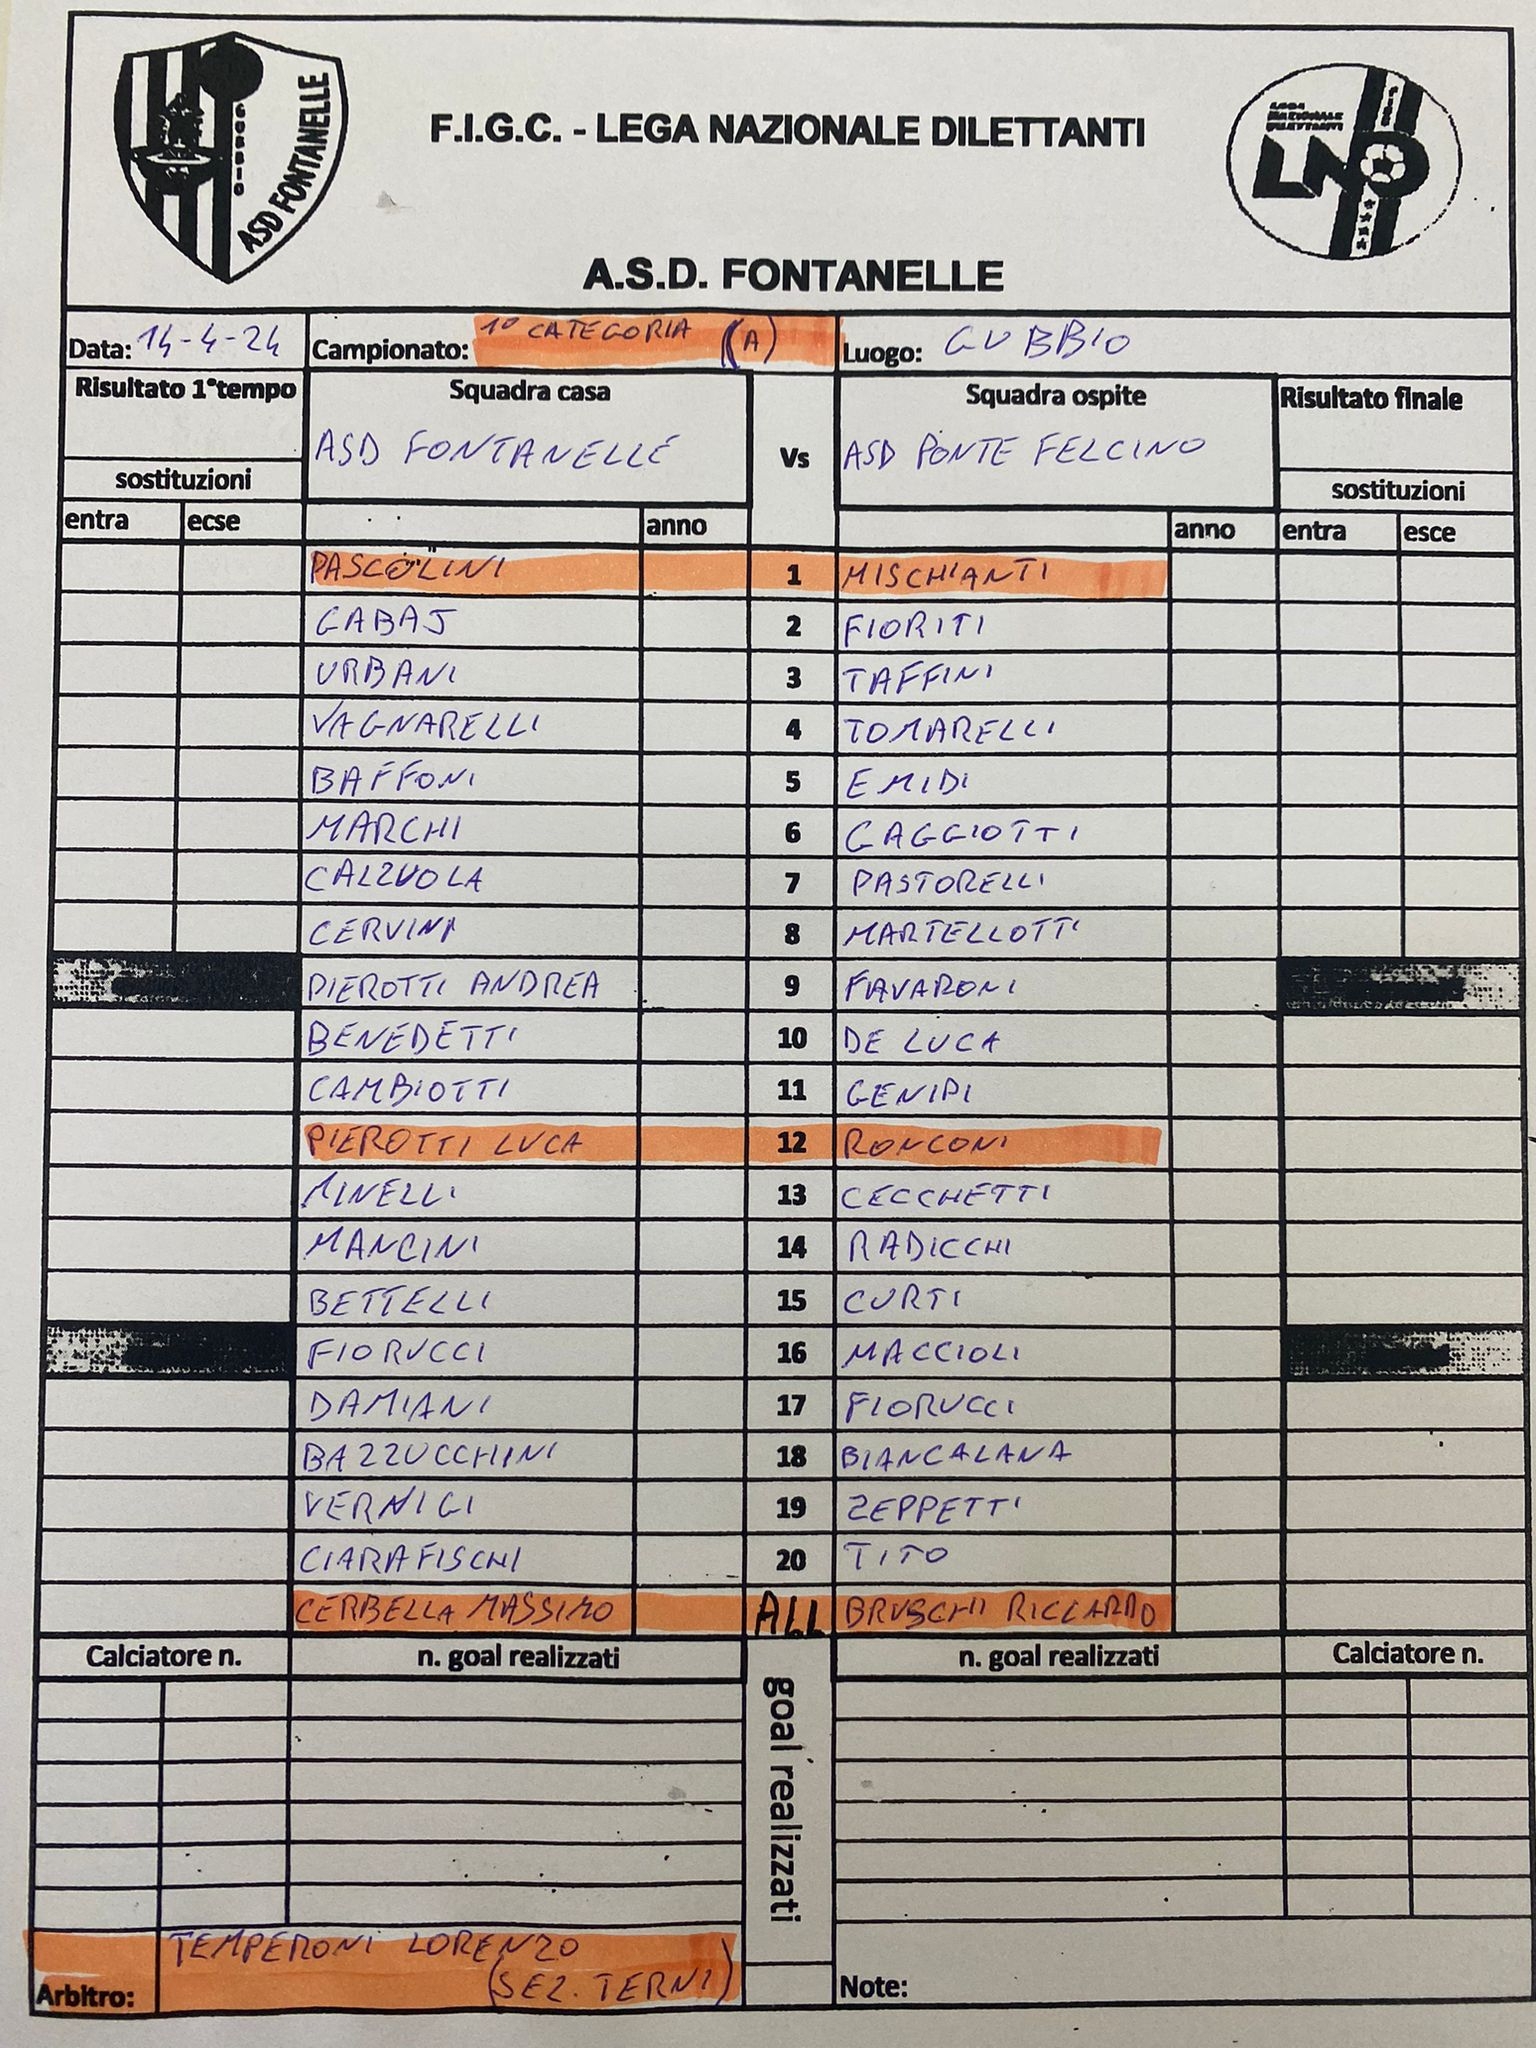 GUBBIO
ASD FONTANELLE
F.I.G.C. - LEGA NAZIONALE DILETTANTI
LEGA
NAZIONALE
DILETTANTI
FIGC
LND
A.S.D. FONTANELLE
Data: 14-4-24 Campionato: 1° CATEGORIA (A) Luogo: GUBBIO
Risultato 1°tempo Squadra casa Vs Squadra ospite Risultato finale
ASD FONTANELLE ASD PONTE FELCINO
sostituzioni sostituzioni
entra ecse anno anno entra esce
PASCOLINI 1 MISCHIANTI
GABAJ 2 FIORITI
URBANI 3 TAFFINI
VAGNARELLI 4 TOMARELLI
BAFFONI 5 EMIDI
MARCHI 6 GAGGIOTTI
CALZUOLA 7 PASTORELLI
CERVINI 8 MARTELLOTTI
PIEROTTI ANDREA 9 FAVARONI
BENEDETTI 10 DE LUCA
CAMBIOTTI 11 GENIPI
PIEROTTI LUCA 12 RONCONI
MINELLI 13 CECCHETTI
MANCINI 14 RADICCHI
BETTELLI 15 CURTI
FIORUCCI 16 MACCIOLI
DAMIANI 17 FIORUCCI
BAZZUCCHINI 18 BIANCALANA
VERNIGI 19 ZEPPETTI
CIARAFISCHI 20 TITO
CERBELLA MASSIMO ALL BRUSCHI RICCARDO
Calciatore n. n. goal realizzati goal realizzati n. goal realizzati Calciatore n.
Arbitro: TEMPERONI LORENZO
(SEZ. TERNI)
Note: